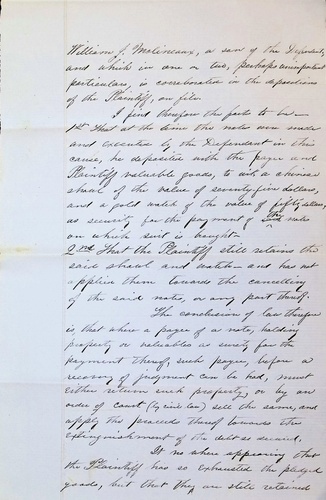 William J. Molineaux, a son of the Defendant,
and which in one or two, perhaps unimportant
particulars, is corroborated in the depositions
of the Plaintiff, on file.
I find therefore the facts to be—
1st That at the time the note were made
and executed by the Defendant in this
cause, he deposited with the payee and
Plaintiff valuable goods, to wit a chinese
shawl of the value of seventy five dollars,
and a gold watch of the value of fifty dollars,
as security for the payment of the said note
on which suit is brought—
2nd That the Plaintiff still retains the
said shawl and watch— and has not
applied them towards the cancelling
of the said notes, or any part thereof.
The conclusion of law therefore
is, that where a payee of a note, holding
property or valuables as surety for the
payment thereof, such payee, before a
recovery of judgment can be had, must
either return such property, or by an
order of court (by civil law) sell the same, and
apply the proceeds thereof towards the
extinguishment of the debt so secured.
It no where appearing that
the Plaintiff has so exhausted the pledged
goods, but that they are still retained